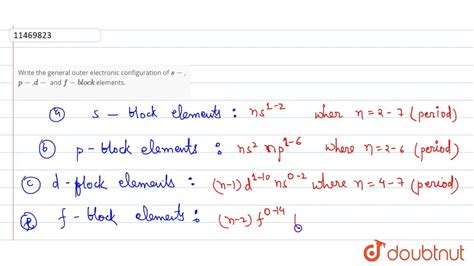 11469823
Write the general outer electronic configuration of s − ,
p − , d − and f − block elements.
(a) s – block elements : ns¹⁻² wher n = 2 – 7 (period)
(b) p – block elements : ns² np¹⁻⁶ where n = 2 – 6 (period)
(c) d – block elements : (n-1) d¹⁻¹⁰ ns⁰⁻² where n = 4 – 7 (period)
f – block elements : (n-2) f⁰⁻¹⁴
doubtnut